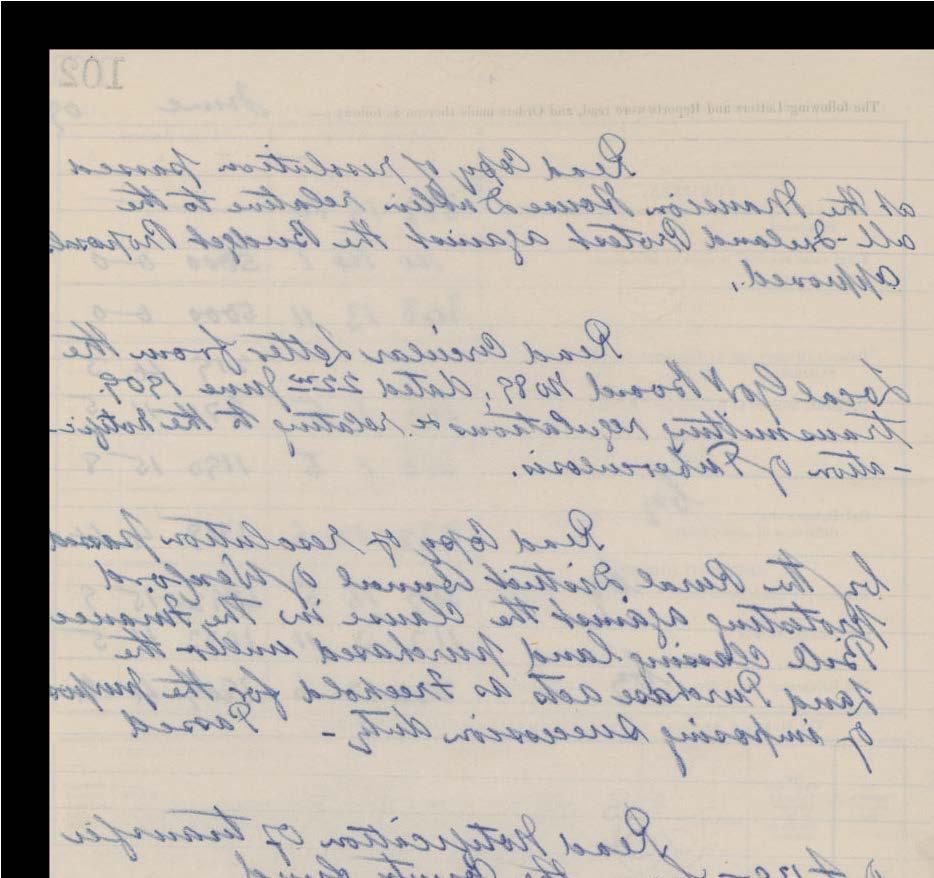 102
The following Letters and Reports were read, and Orders made thereon as follows:—
June
09
Read Copy of resolution passed
at the Mansion House Dublin relative to the
all-Ireland Protest against the Budget Proposals
approved.
Read Circular Letter from the
Local Govt Board No 89, dated 22nd June 1909
transmitting regulations &c relating to the Notific-
-ation of Tuberculosis.
Read Copy of resolution passed
by the Rural District Council of Wexford
protesting against the Clause in the Finance
Bill Classing land purchased under the
Land Purchase acts as Freehold for the purpose
of imposing succession duty - Passed
Read Notification of transfer